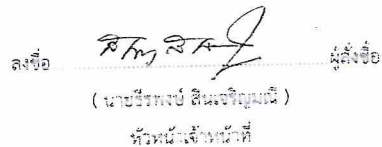 ลงชื่อ ผู้สั่งซื้อ
( นายธีรพงษ์ สินเจริญมณี )
หัวหน้าเจ้าหน้าที่